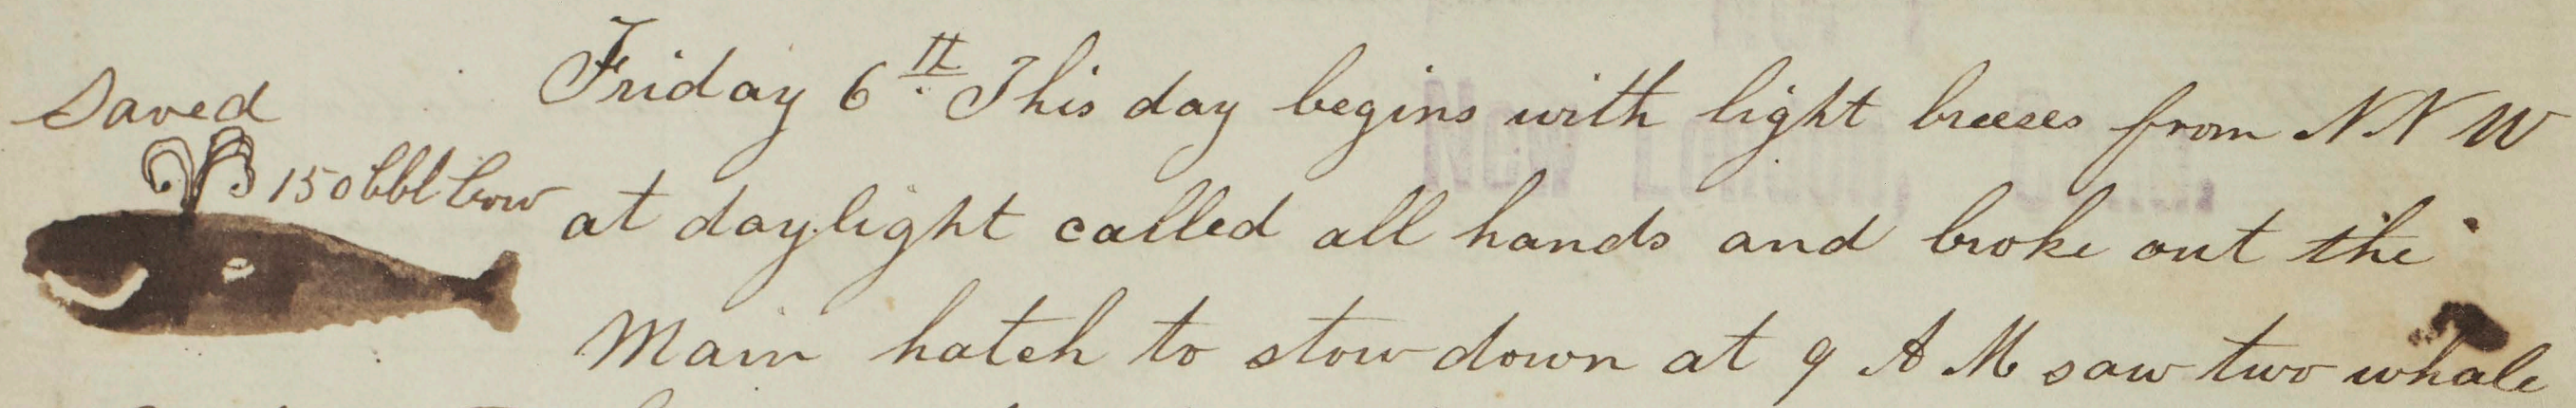 Saved
150 bbl Bow
Friday 6th This day begins with light breeses from N N W
at daylight called all hands and broke out the
Main hatch to stow down at 9 A M saw two whale